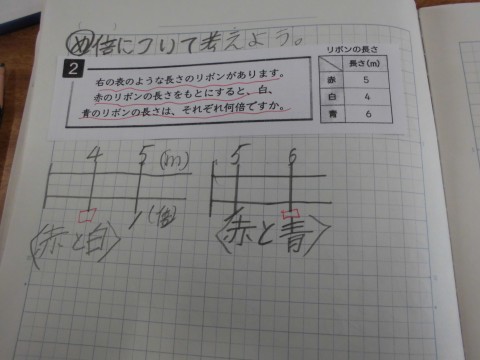 め 倍について考えよう。
2
右の表のような長さのリボンがあります。
赤のリボンの長さをもとにすると、白、
青のリボンの長さは、それぞれ何倍ですか。
リボンの長さ
長さ(m)
赤 5
白 4
青 6
4 5 (m)
□ 1 (倍)
〈赤と白〉
5 6
1 □
〈赤と青〉